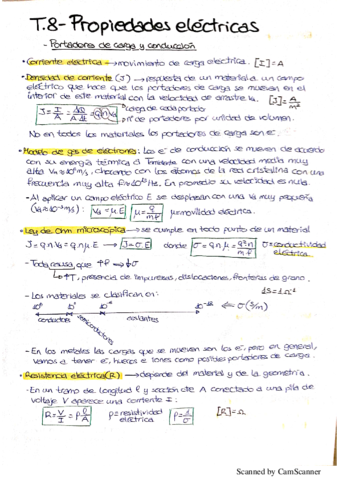 T.8- Propiedades eléctricas
- Portadores de carga y conducción
• Corriente eléctrica → movimiento de carga eléctrica. [I]=A
• Densidad de corriente (J) → respuesta de un material a un campo
eléctrico que hace que los portadores de carga se muevan en el
interior de este material con la velocidad de arrastre
J = I/A = dQ/A dt = q n Vd
carga de cada portador
nº de portadores por unidad de volumen.
No en todos los materiales los portadores de carga son e⁻.
• Modelo de gas de electrones: Los e⁻ de conducción se mueven de acuerdo
con su energía térmica a T constante con una velocidad media muy
alta, chocando con los átomos de la red cristalina con una
frecuencia muy alta. En promedio su velocidad es nula.
- Al aplicar un campo eléctrico E se desplazan con una Vd muy pequeña
Vd = μE μ = movilidad eléctrica.
• Ley de Ohm microscópica → se cumple en todo punto de un material
J = q n Vd = q n μ E → J = σ E donde σ = conductividad
eléctrica
- Todo causa que ↑ρ → ↓σ
↳ ↑T, presencia de impurezas, dislocaciones, fronteras de grano.
- Los materiales se clasifican en:
← σ (S/m)
conductores semiconductores aislantes
- En los metales las cargas que se mueven son los e⁻, pero en general,
vamos a tener e⁻, huecos e iones como posibles portadores de carga.
• Resistencia eléctrica (R) → depende del material y de la geometría.
- En un trozo de longitud l y sección de A conectado a una pila de
voltaje V aparece una corriente I:
R = V/I = ρ l/A ρ = resistividad
eléctrica ρ = 1/σ [R] = Ω
Scanned by CamScanner